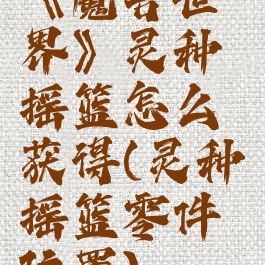 《魔兽世
界》灵种
摇篮怎么
获得(灵种
摇篮零件
位置)